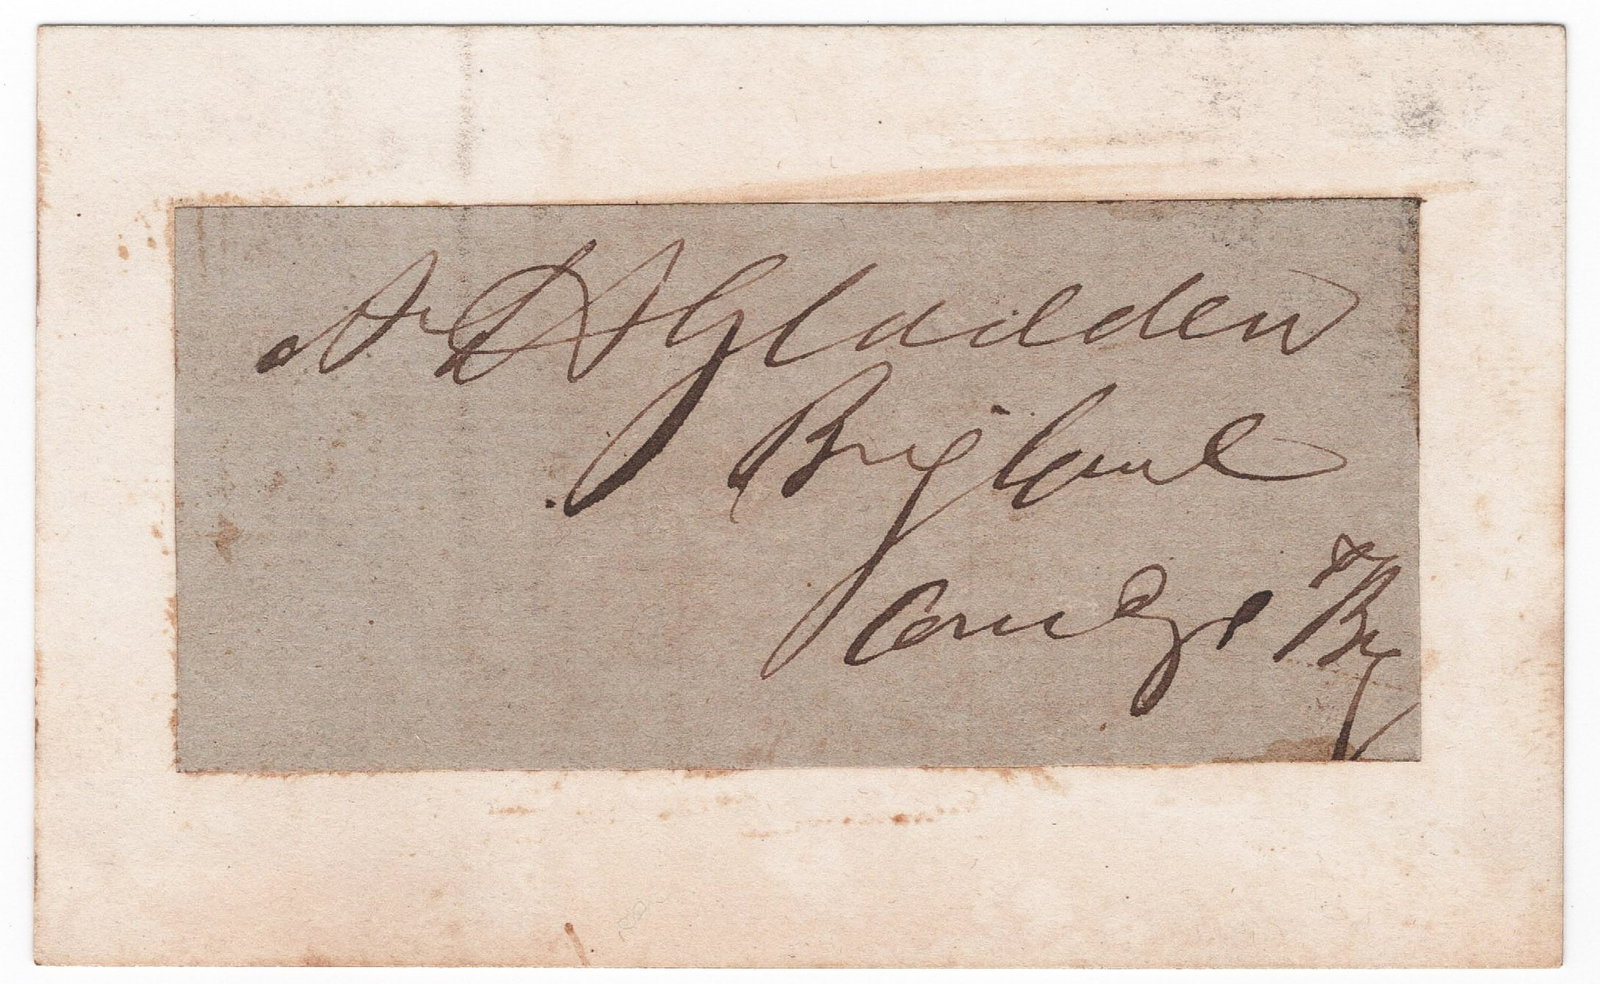 A H Gladden
Brig Genl
Comdg Brg